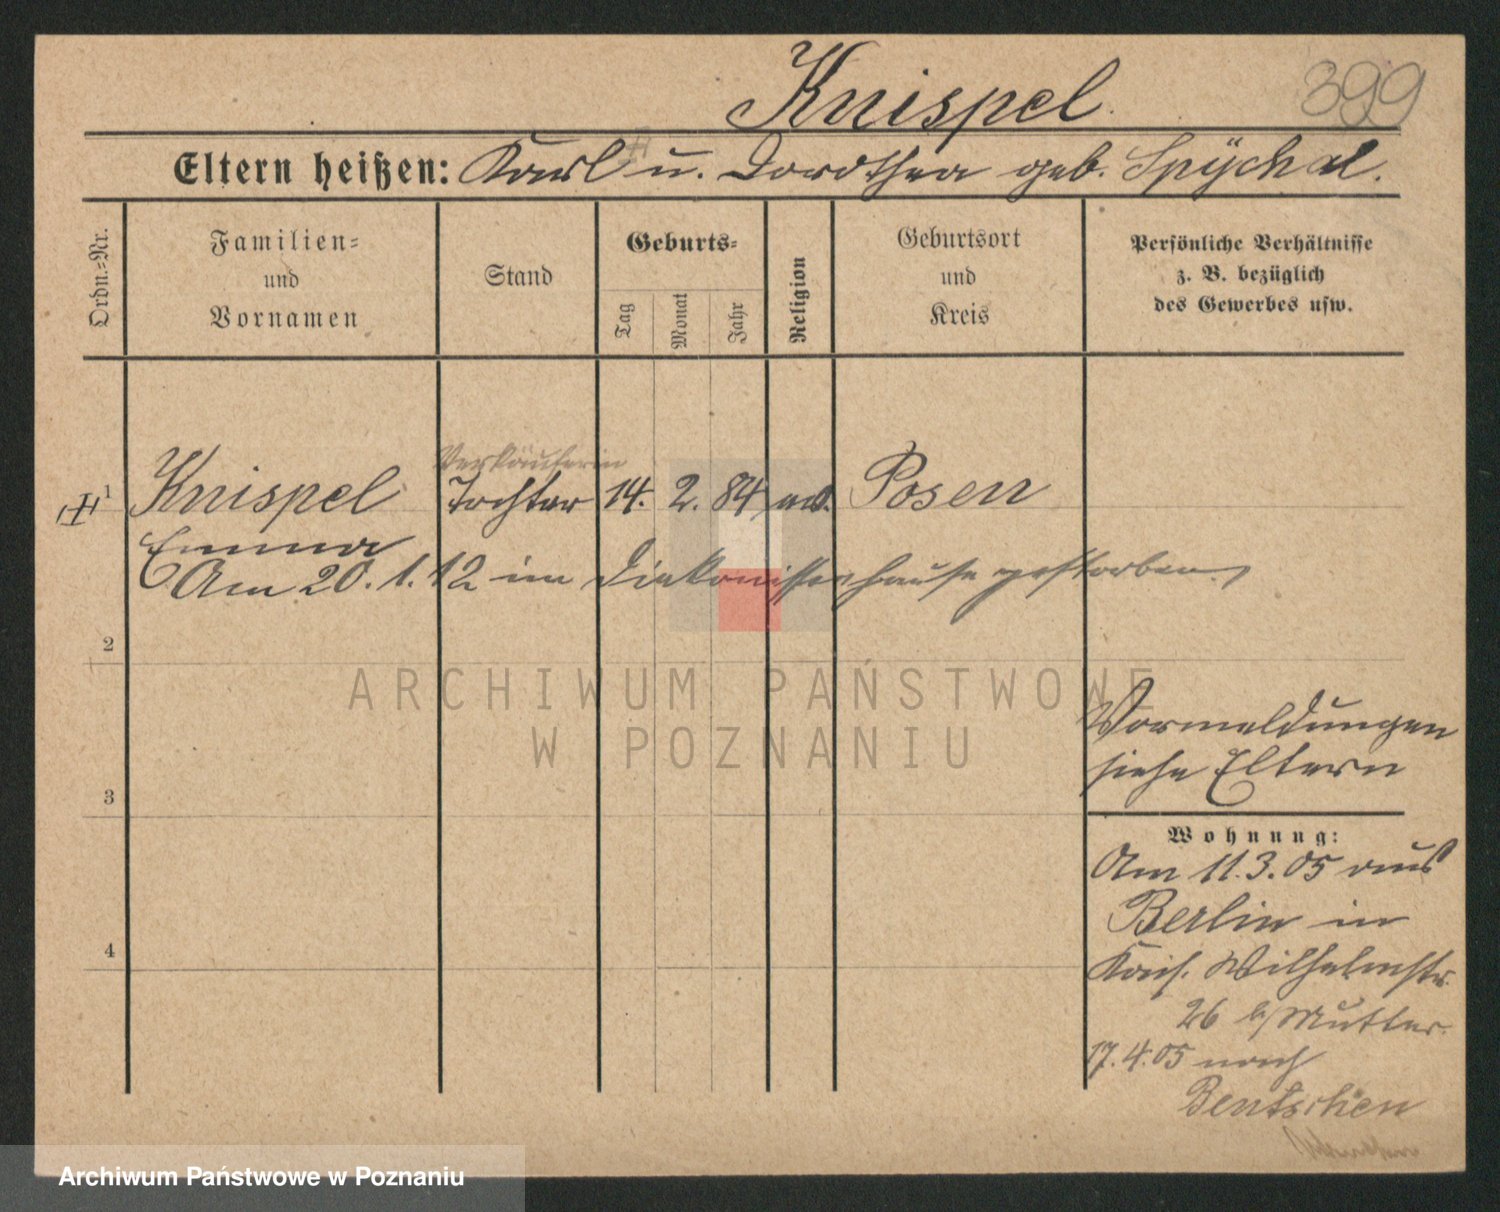 Knispel.
399
Eltern heißen: Karl u. Dorothea geb. Spÿchal.
Ordn.-Nr.
Familien-
und
Vornamen
Stand
Geburts-
Tag
Monat
Jahr
Religion
Geburtsort
und
Kreis
Persönliche Verhältnisse
z. B. bezüglich
des Gewerbes usw.
Verkäuferin
1 Knispel Tochter 14. 2. 84 ev. Posen
Emma
Am 20. 1. 12 im Diakonissenhause gestorben.
2
ARCHIWUM PAŃSTWOWE
W POZNANIU
Vormeldungen
siehe Eltern
3
Wohnung:
Am 11.3.05 aus
Berlin in
Kais. Wilhelmstr.
26 b/Mutter.
17.4.05 nach
Bentschen
4
Archiwum Państwowe w Poznaniu